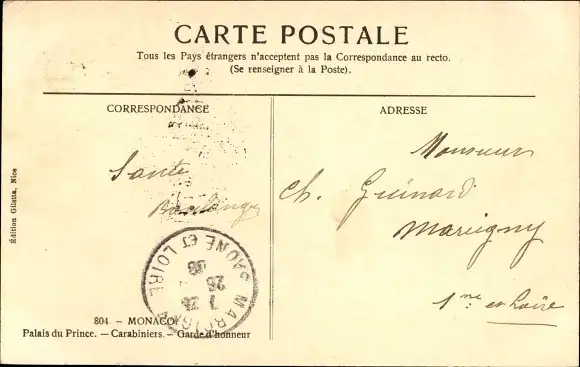 CARTE POSTALE
Tous les Pays étrangers n'acceptent pas la Correspondance au recto.
(Se renseigner à la Poste).
CORRESPONDANCE
ADRESSE
Santé
Boulanger
Monsieur
Ch. Guinard
Marigny
et Loire
SAONE ET LOIRE
26
Édition Giletta, Nice
804. — MONACO
Palais du Prince. — Carabiniers. — Garde d'honneur